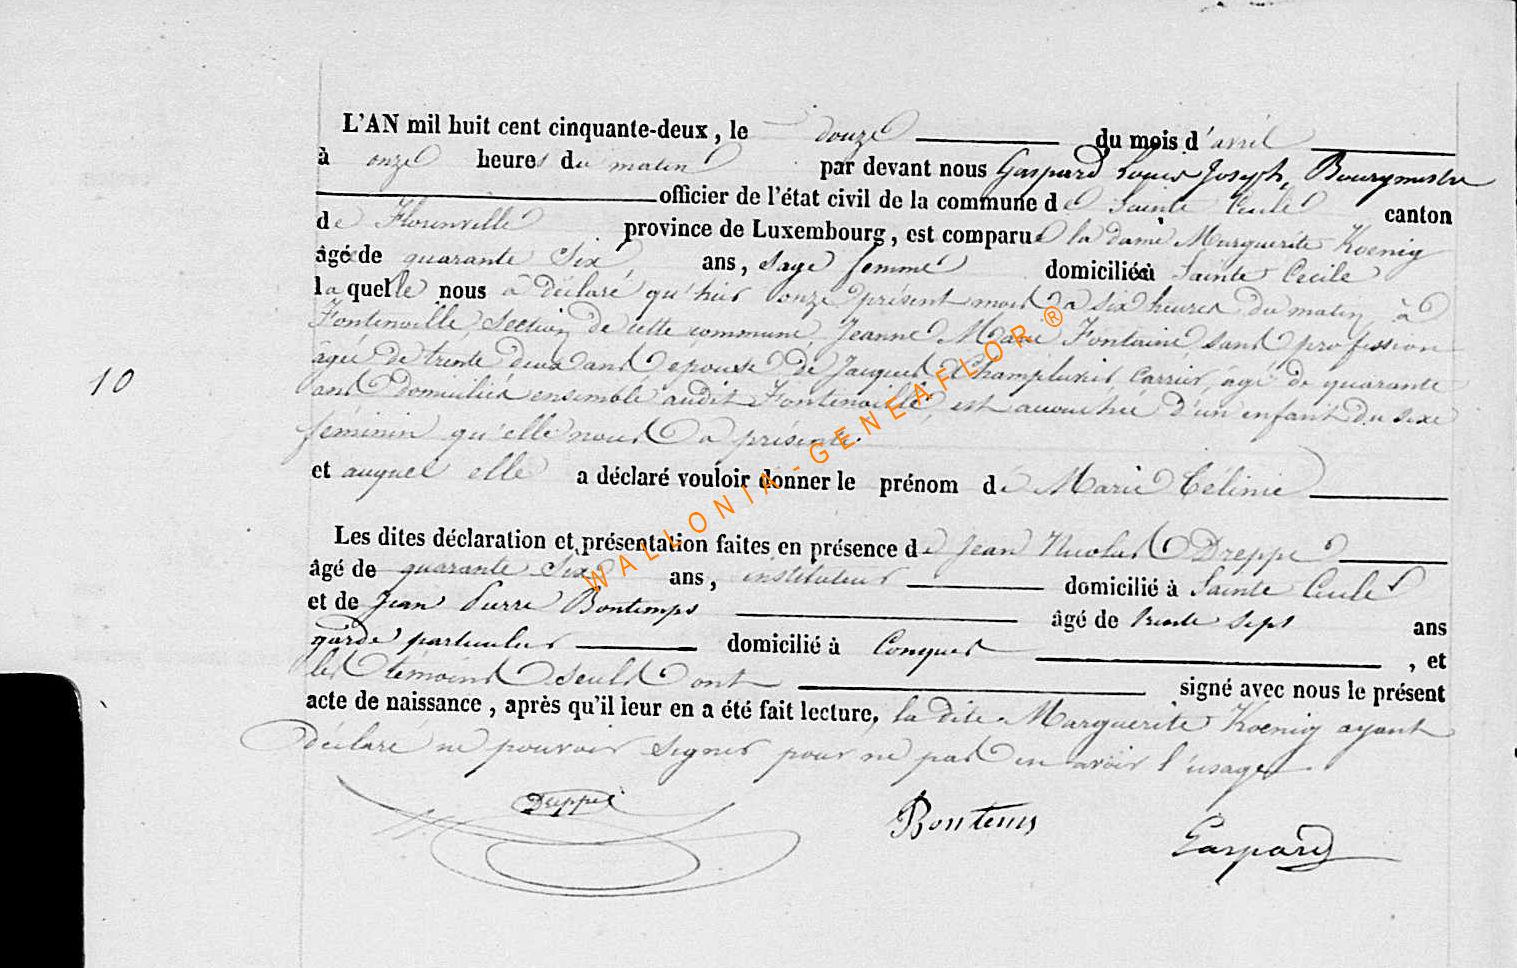 L'AN mil huit cent cinquante-deux, le douze du mois d'avril
à onze heures du matin par devant nous Gaspard Louis Joseph, Bourgmestre
officier de l'état civil de la commune de Sainte Cecile canton
de Florenville province de Luxembourg, est comparue la dame Marguerite Koenig
âgée de quarante six ans, sage femme domiciliée à Sainte Cecile
laquelle nous a déclaré qu'hier onze présent mois à six heures du matin, à
Fontenoille, section de cette commune, Jeanne Marie Fontaine sans profession
âgée de trente deux ans epouse de Jacques Champluvier, Carrier, âgé de quarante
ans domiciliés ensemble audit Fontenoille, est accouchée d'un enfant du sexe
féminin qu'elle nous a présenté.
10
et auquel elle a déclaré vouloir donner le prénom de Marie Célinie
Les dites déclaration et présentation faites en présence de Jean Nicolas Dreppe
âgé de quarante six ans, instituteur domicilié à Sainte Cecile
et de Jean Pierre Bontemps âgé de trente sept ans
garde particulier domicilié à Conques, et
les témoins seuls ont signé avec nous le présent
acte de naissance, après qu'il leur en a été fait lecture, la dite Marguerite Koenig ayant
déclaré ne pouvoir signer pour ne pas en avoir l'usage.
Dreppe
Bontems
Gaspard
WALLONIA-GENEAFLOR®